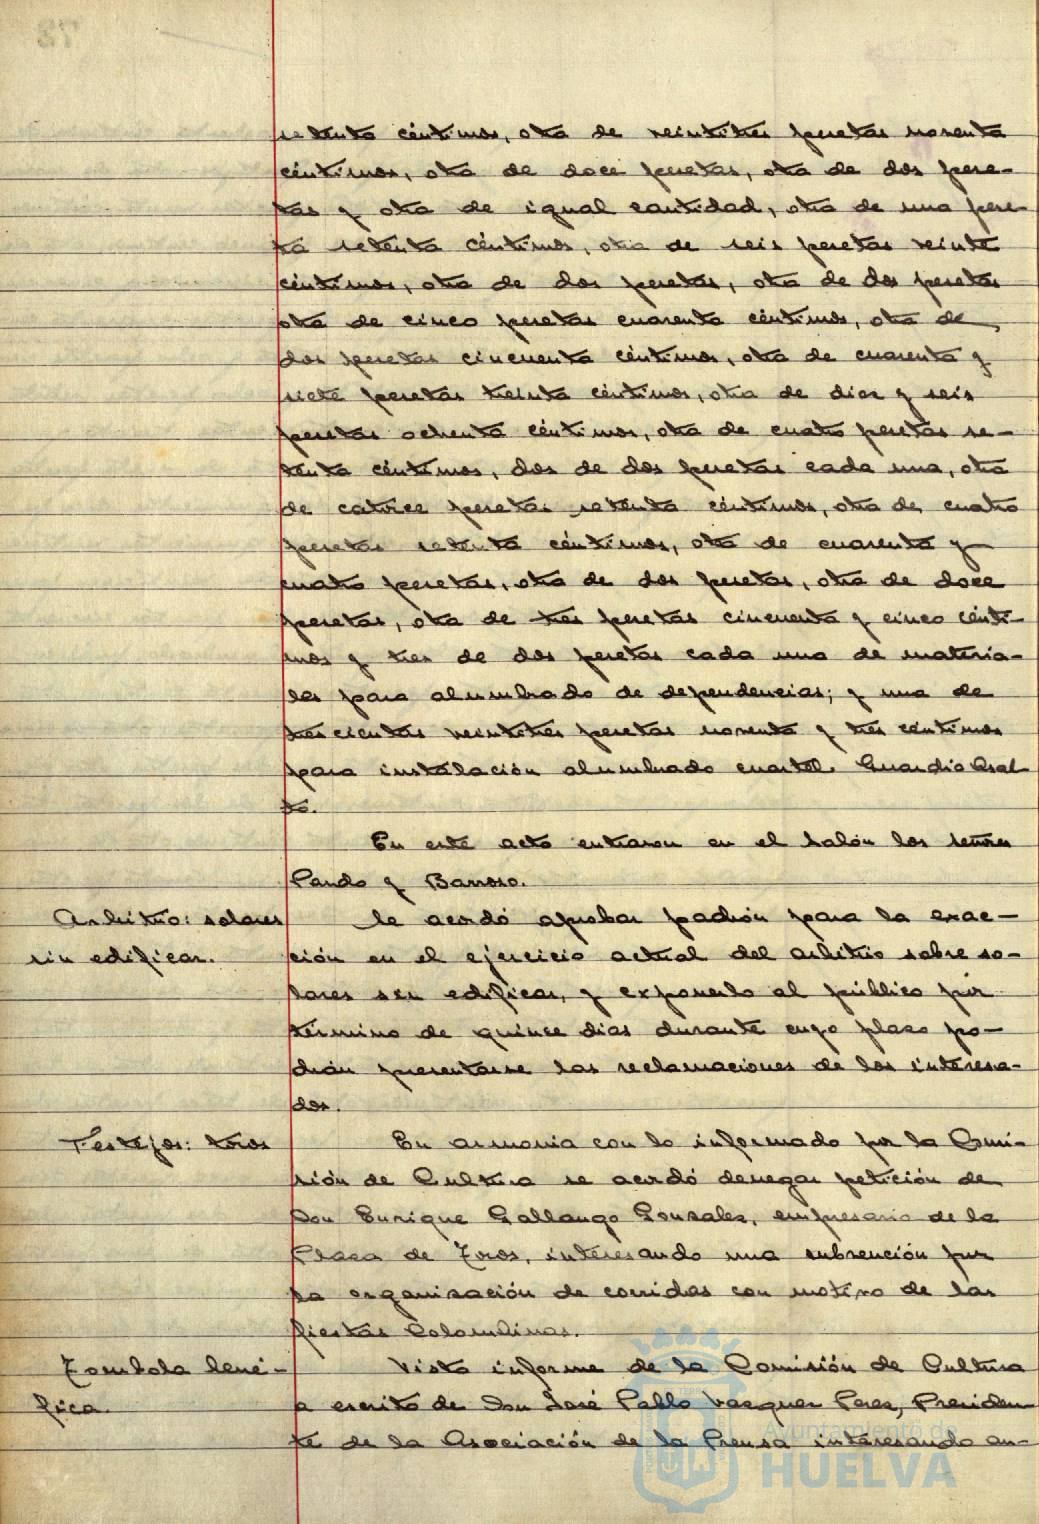 setenta céntimos, otra de veintitres pesetas noventa
céntimos, otra de doce pesetas, otra de dos pese-
tas y otra de igual cantidad, otra de una pese-
ta setenta céntimos, otra de seis pesetas veinte
céntimos, otra de dos pesetas, otra de dos pesetas
otra de cinco pesetas cuarenta céntimos, otra de
dos pesetas cincuenta céntimos, otra de cuarenta y
siete pesetas treinta céntimos, otra de diez y seis
pesetas ochenta céntimos, otra de cuatro pesetas se-
tenta céntimos, dos de dos pesetas cada una, otra
de catorce pesetas setenta céntimos, otra de cuatro
pesetas setenta céntimos, otra de cuarenta y
cuatro pesetas, otra de dos pesetas, otra de doce
pesetas, otra de tres pesetas cincuenta y cinco cénti-
mos y tres de dos pesetas cada una de materia-
les para alumbrado de dependencias; y una de
trescientas veintitres pesetas noventa y tres céntimos
para instalación alumbrado cuartel Guardia Asal-
to.
En este acto entraron en el salón los señores
Pando y Barroso.
Arbitrio: solares
sin edificar.
Se acordó aprobar padrón para la exac-
ción en el ejercicio actual del arbitrio sobre so-
lares sin edificar, y exponerlo al público por
término de quince dias durante cuyo plazo po-
drán presentarse las reclamaciones de los interesa-
dos.
Festejos: toros
En armonia con lo informado por la Comi-
sión de Cultura se acordó denegar petición de
Don Enrique Gallango Gonzales, empresario de la
Plaza de Toros, interesando una subvención por
la organización de corridas con motivo de las
fiestas Colombinas.
Tombola bené-
fica.
Visto informe de la Comisión de Cultura
a escrito de Don José Pablo Vazquez Perez, Presiden-
te de la Asociación de la Prensa interesando au-
Ayuntamiento de
HUELVA